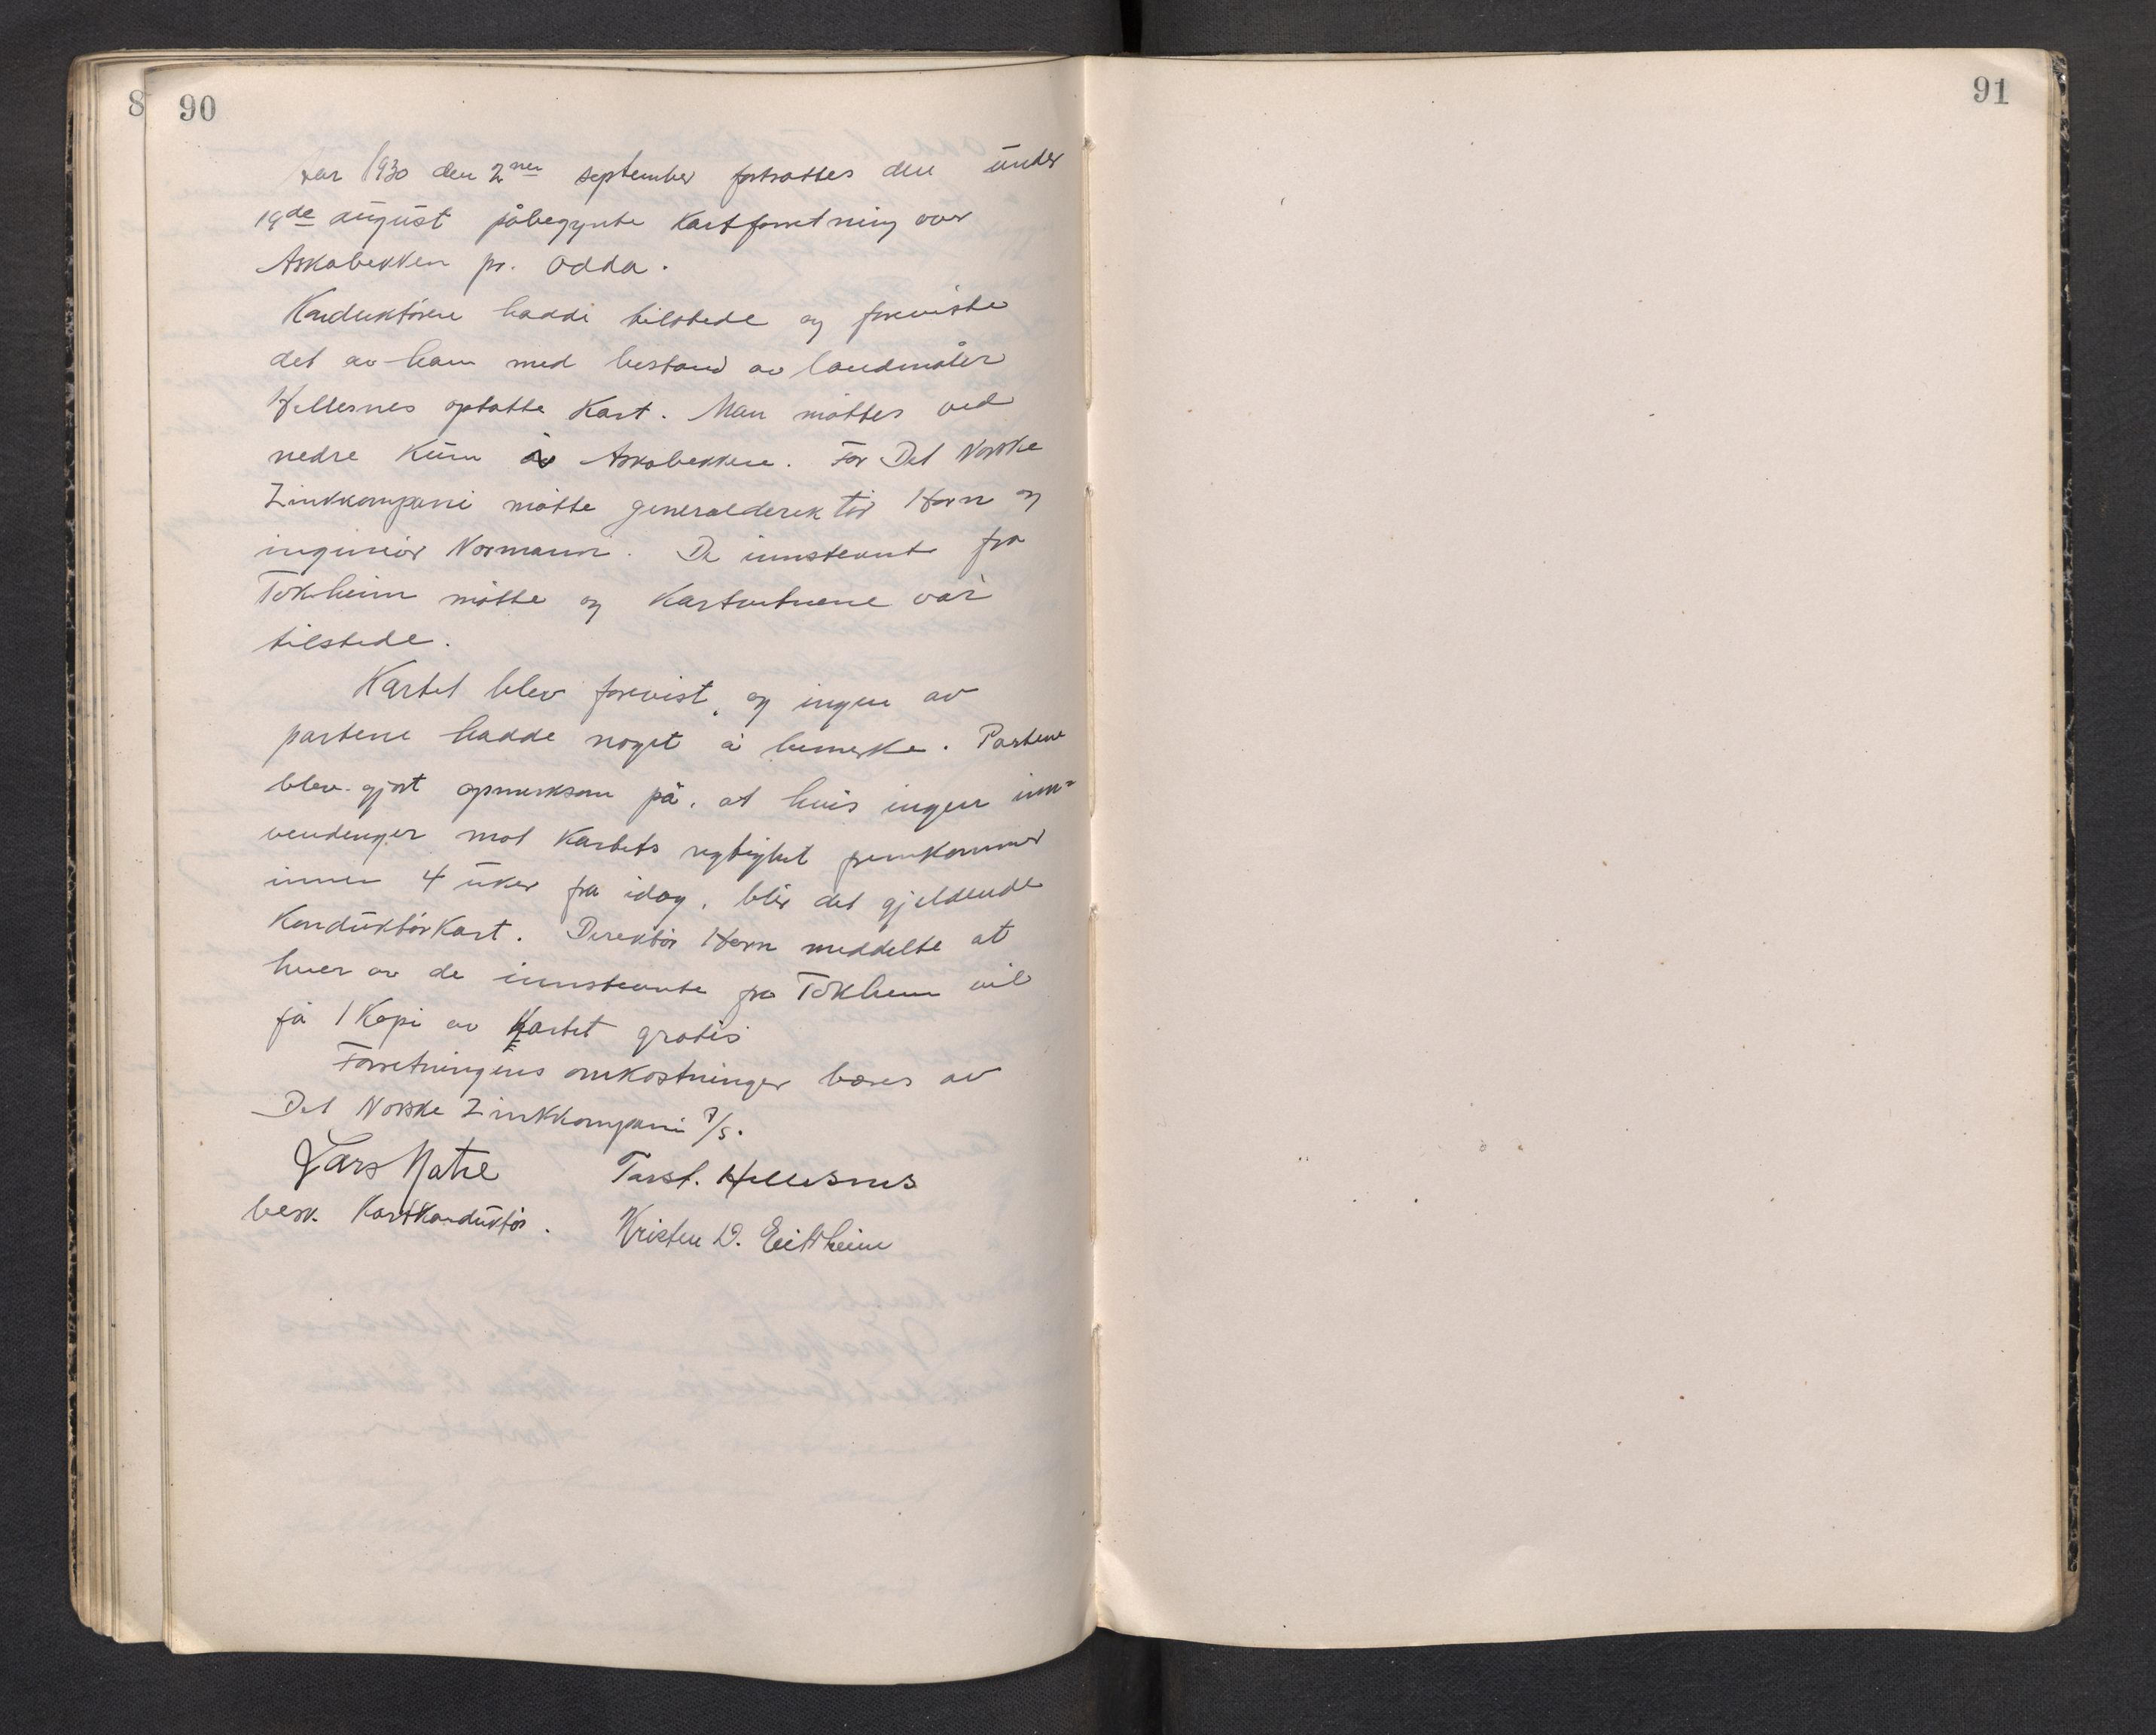 8 90
91
Aar 1930 den 2nen september fortsattes den under
19de august påbegynte Kartforretning over
Askabekken pr. Odda.
Konduktøren hadde tilstede og foreviste
det av ham med bistand av landmåler
Hellesnes optatte Kart. Man møttes ved
nedre Kum av Askabekken. For Det Norske
Zinkkompani møtte generalderektør Horn og
ingeniør Normann. De innstevnte fra
Tokheim møtte og Kartvitnene var
tilstede.
Kartet blev forevist, og ingen av
partene hadde noget å bemerke. Partene
blev gjort opmerksom på, at hvis ingen inn=
vendinger mot Kartets rigtighet fremkommer
innen 4 uker fra idag, blir det gjeldende
Konduktørkart. Direktør Horn meddelte at
hver av de innstevnte fra Tokheim vil
få 1 Kopi av Kartet gratis
Forretningens omkostninger bæres av
Det Norske Zinkkompani A/S.
Lars Natre Torst. Hellesnes
besk. Kartkonduktør. Kristen D. Eitrheim